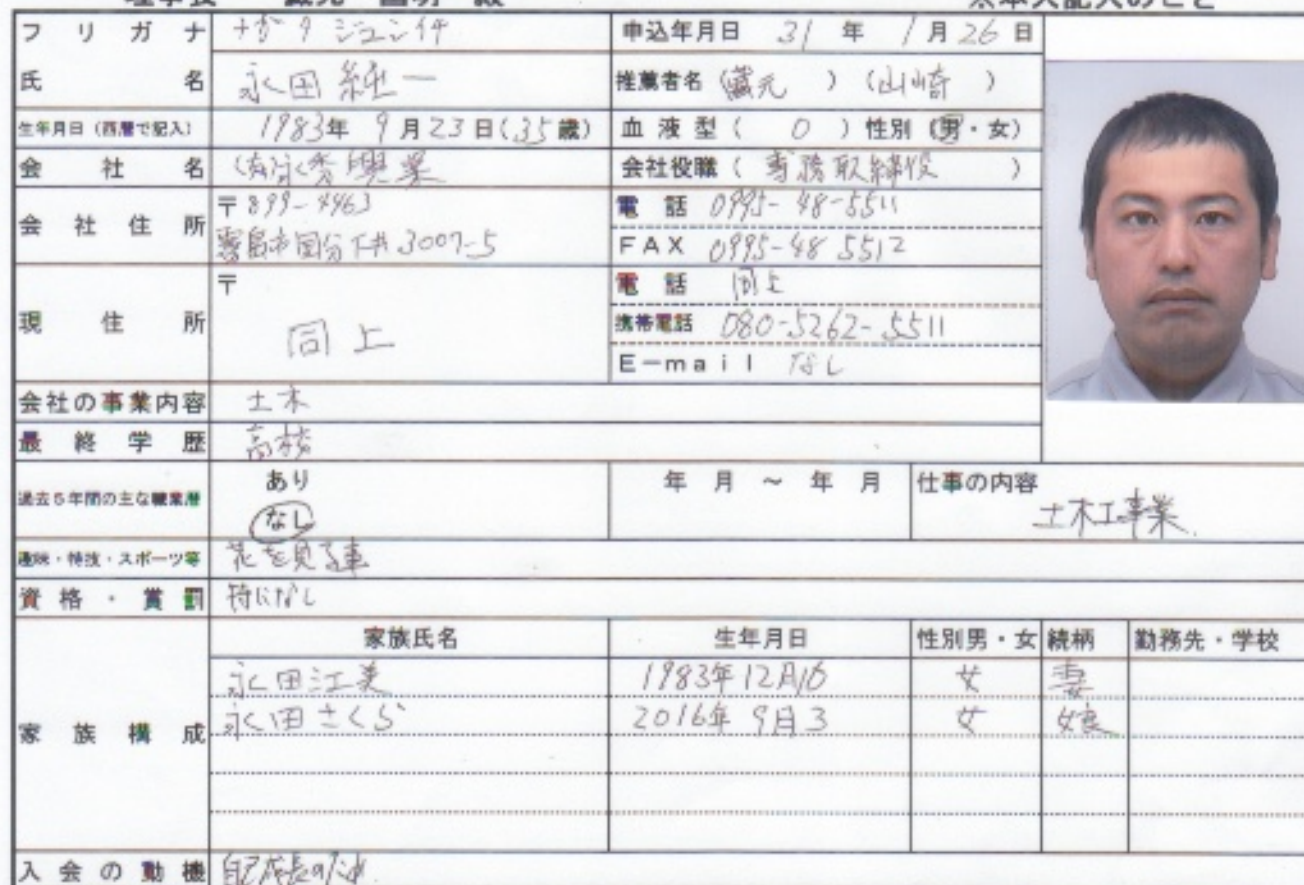 ※本人記入のこと
フリガナ ナガタ ジュンイチ 申込年月日 31年1月26日
氏名 永田 純一 推薦者名(藏元)(山崎)
生年月日(西暦で記入) 1983年9月23日(35歳) 血液型(O)性別(男・女)
会社名 会社役職(専務取締役)
会社住所 〒899-4463 電話 0995-48-5511
霧島市国分下井3007-5 FAX 0995-48 5512
現住所 〒 電話 同上
同上 携帯電話 080-5262-5511
E-mail なし
会社の事業内容 土木
最終学歴 高校
過去5年間の主な職業暦 あり 年 月 ~ 年 月 仕事の内容
なし 土木工事業
趣味・特技・スポーツ等 花を見る事
資格・賞罰 特になし
家族構成 家族氏名 生年月日 性別男・女 続柄 勤務先・学校
永田江美 1983年12月16 女 妻
永田さくら 2016年9月3 女 娘
入会の動機 自己成長のため.